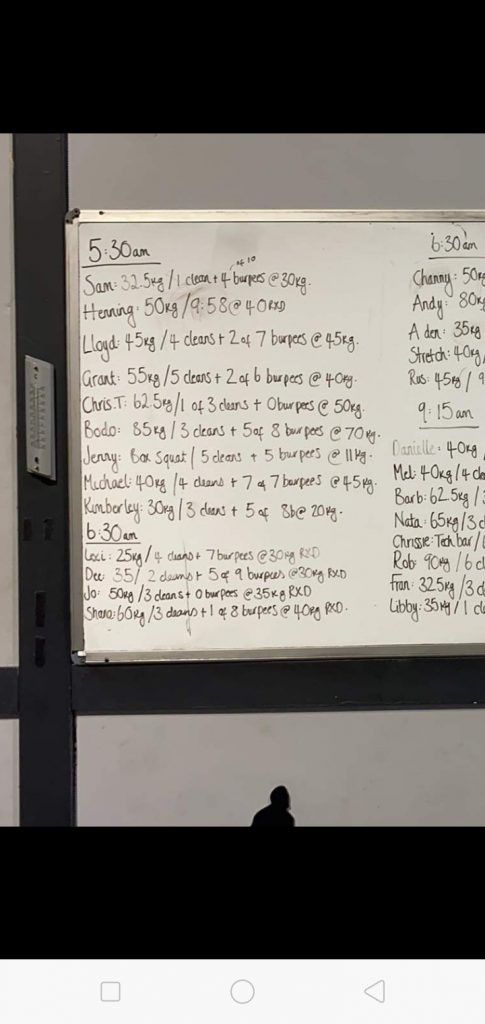 5:30am
Sam: 32.5kg / 1 clean + 4 of 10 burpees @ 30kg.
Henning: 50kg / 9:58 @ 40 RXD
Lloyd: 45kg / 4 cleans + 2 of 7 burpees @ 45kg.
Grant: 55kg / 5 cleans + 2 of 6 burpees @ 40kg.
Chris.T: 62.5kg / 1 of 3 cleans + 0 burpees @ 50kg.
Bodo: 85kg / 3 cleans + 5 of 8 burpees @ 70kg.
Jenny: Box Squat / 5 cleans + 5 burpees @ 11kg.
Michael: 40kg / 4 cleans + 7 of 7 burpees @ 45kg.
Kimberley: 30kg / 3 cleans + 5 of 8b @ 20kg.
6:30am
Lexi: 25kg / 4 cleans + 7 burpees @ 30kg RXD
Dee: 35 / 2 cleans + 5 of 9 burpees @ 30kg RXD
Jo: 50kg / 3 cleans + 0 burpees @ 35kg RXD
Shana: 60kg / 3 cleans + 1 of 8 burpees @ 40kg RXD.
6:30am
Channy: 50kg
Andy: 80kg
Aden: 35kg
Stretch: 40kg /
Rus: 45kg / 9
9:15am
Danielle: 40kg /
Mel: 40kg / 4 cle
Barb: 62.5kg / 3
Nata: 65kg / 3 c
Chrissie: Tech bar /
Rob: 90kg / 6 cl
Fran: 32.5kg / 3 c
Libby: 35kg / 1 cl